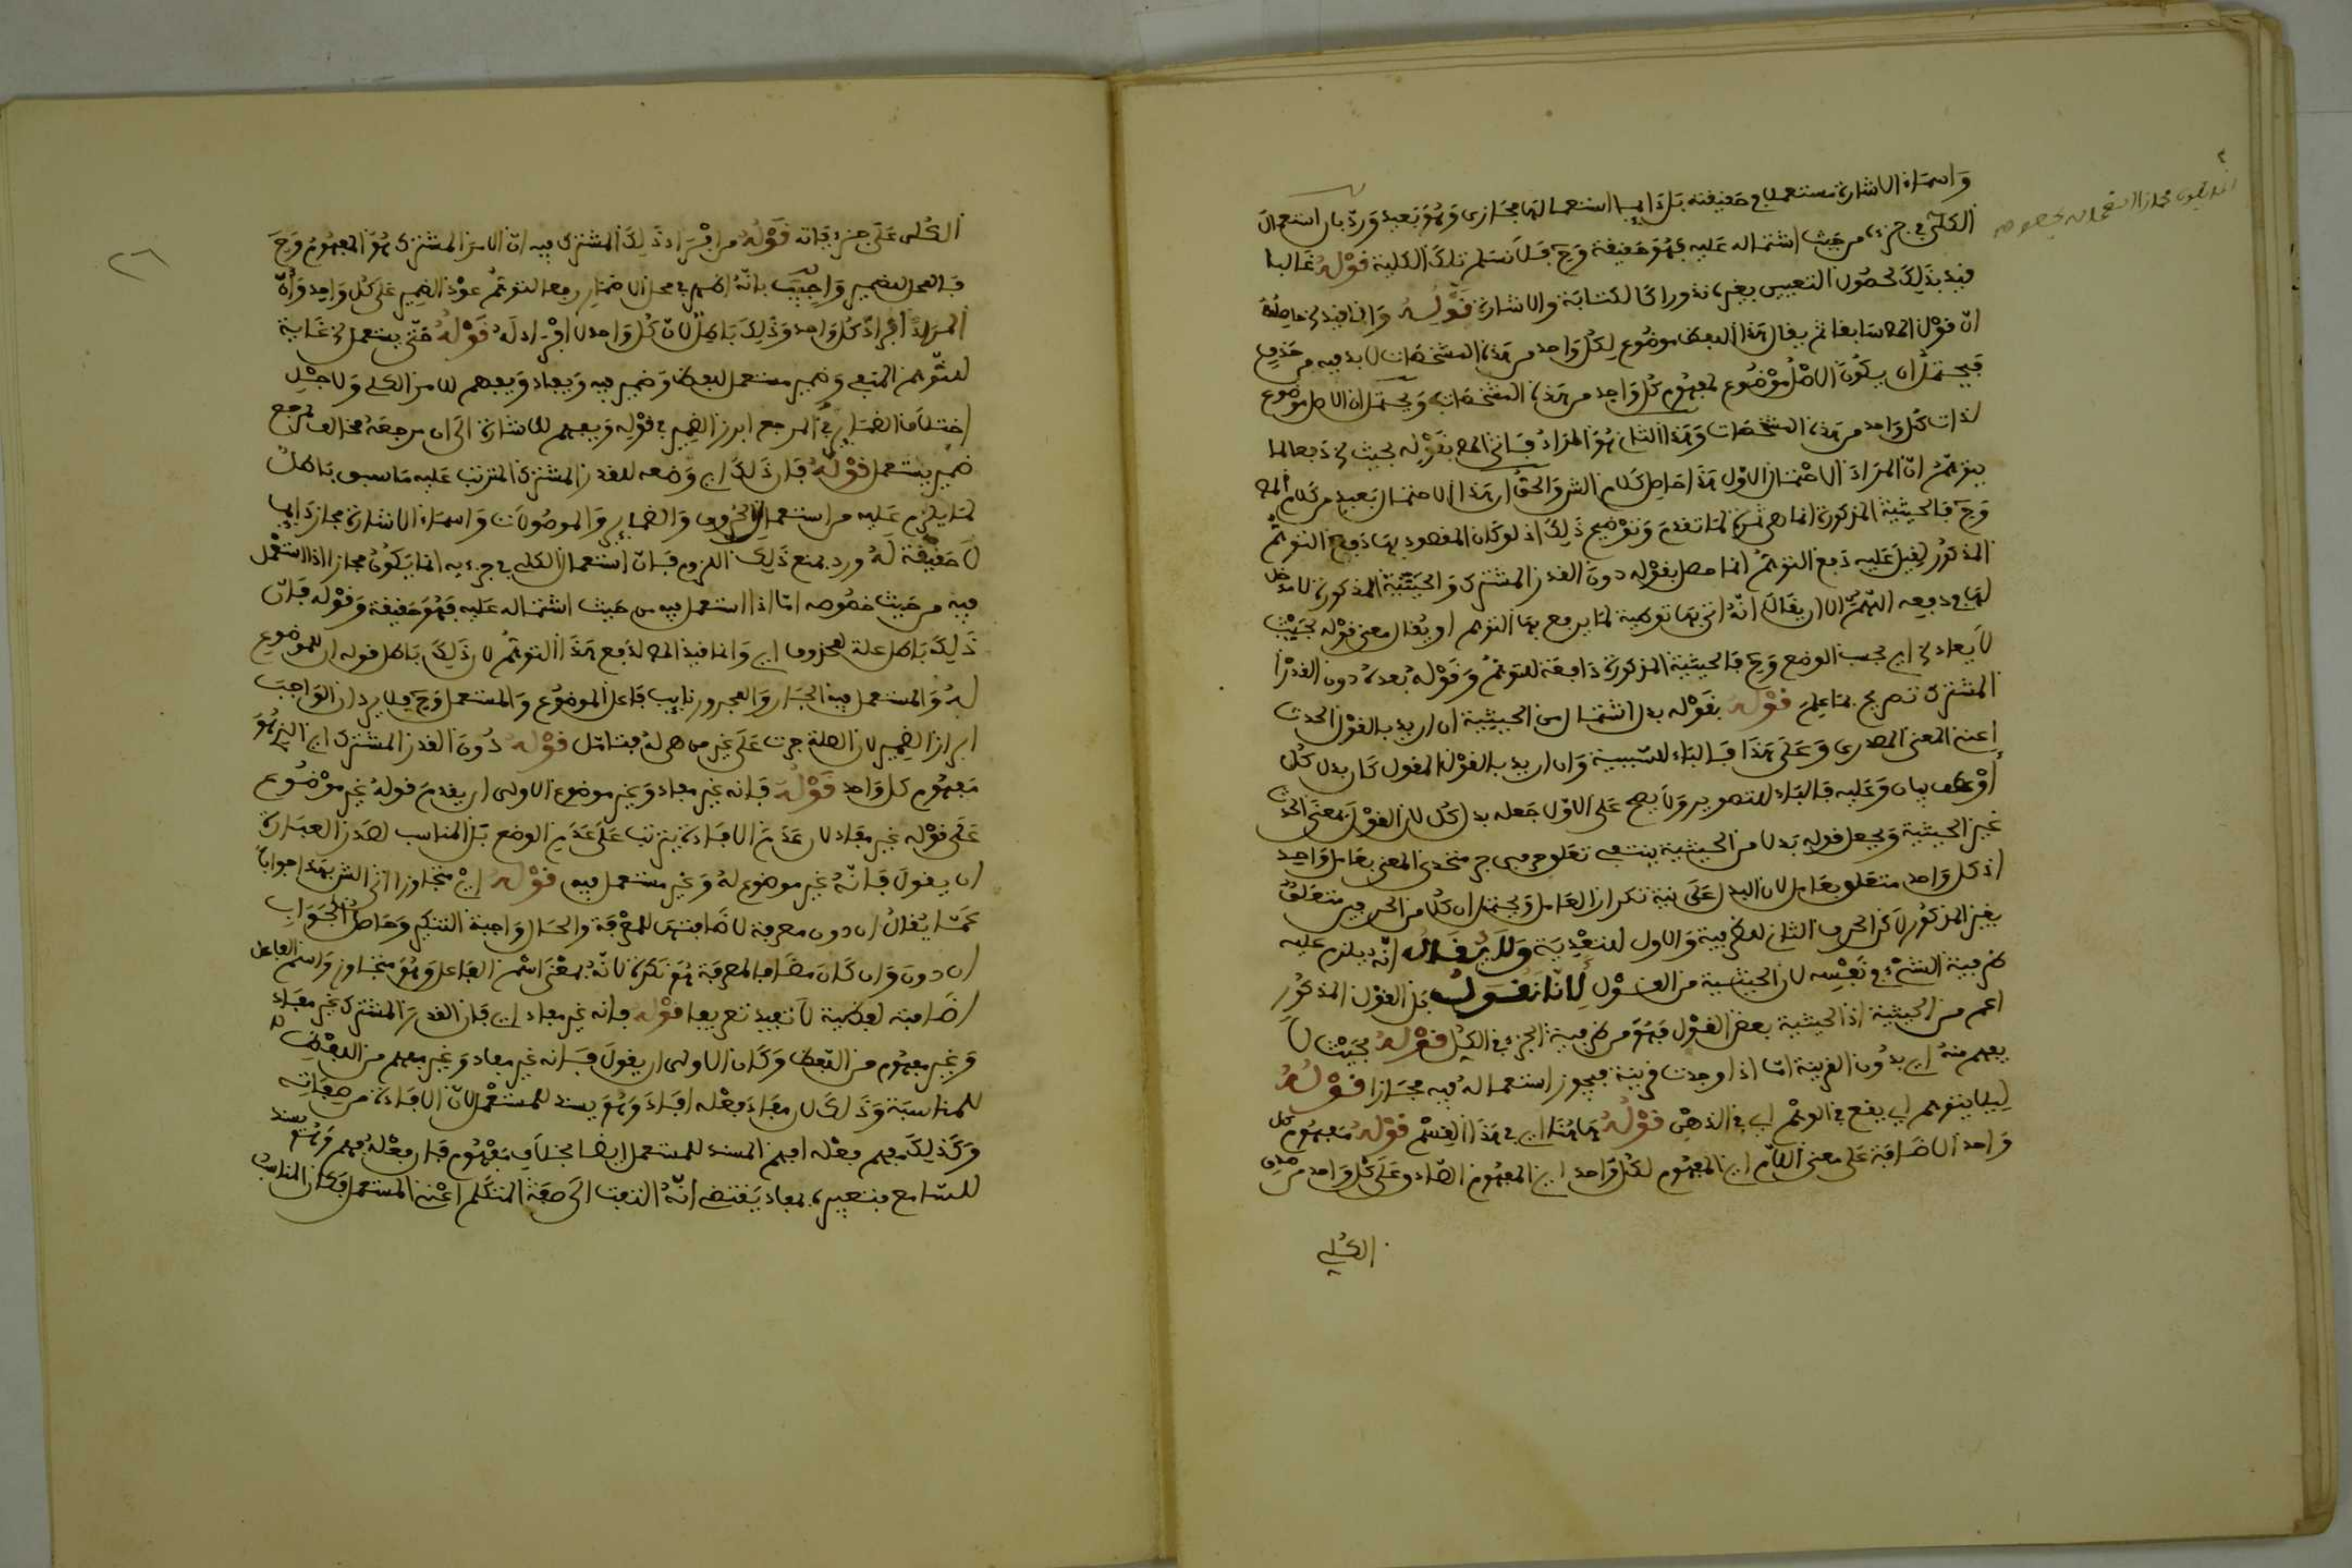 واسماء الاشارة مستعملا في حقيقته بل دايما استعمالها مجازى وهو بعيد ورد بان استعمال
الكلي في جزءه من حيث اشتماله عليه فهو حقيقة وح فلا نسلم تلك الكلية قوله غالبا
قيد بذلك لحصول التعيين بغيره نذورا كالكتابة والاشارة قوله وانما قيد الخ حاصله
ان قول المص سابقا ثم يقال هذا اللفظ موضوع لكل واحد من هذه المشخصات لابد فيه من حذف
فيحتمل ان يكون الاصل موضوع لمفهوم كل واحد من هذه المشخصات ويحتمل ان الاصل موضوع
لذات كل واحد من هذه المشخصات وهذا الثاني هو المراد فاتى المص بقوله بحيث الخ دفعا لما
يتوهم ان المراد الاحتمال الاول هذا حاصل كلام الش والحق ان هذا الاحتمال بعيد من كلام المص
وح فالحيثية المذكورة انما هي ثمرة لما تقدم وتوضيح ذلك اذ لو كان المقصود بها دفع التوهم
المذكور لقيل عليه دفع التوهم انما حصل بقوله دون القدر المشترك والحيثية المذكورة لا دخل
لها في دفعه اللهم الا ان يقال انه اتى بها توطية لما يرفع بها التوهم او يقال معنى قوله بحيث
لا يفاد الخ اي بحسب الوضع وح فالحيثية المذكورة دافعة للتوهم وقوله بعده دون القدر
المشترك تصريح بما علم قوله بقوله بدل اشتمال من الحيثية ان اريد بالقول الحدث
اعنى المعنى المصدرى وعلى هذا فالباء للسببية وان اريد بالقول المقول كان بدل كل
او عطف بيان وعليه فالباء للتصوير ولا يصح على الاول جعله بدل كل لان القول بمعنى الحدث
غير الحيثية وبجعل قوله بدلا من الحيثية ينتفى تعلق حرفي جر متحدى المعنى بعامل واحد
اذ كل واحد متعلق بعامل لان البدل على نية تكرار العامل ويحتمل ان كلا من الحرفين متعلق
بقيد المذكور لاكن الحرف الثاني للظرفية والاول للتعدية ولا يقال انه يلزم عليه
ظرفية الشيء في نفسه لان الحيثية من القول لانا نقول بل القول المذكور
اعم من الحيثية اذ الحيثية بعض القول فهو من ظرفية الجزء في الكل قوله بحيث لا
يفهم منه اي بدون القرينة اما اذا وجدت قرينة فيجوز استعماله فيه مجازا قوله
ليلا يتوهم اي يقع في الوهم اي في الذهن قوله هاهنا اي في هذا القسم قوله مفهوم كل
واحد الاضافة على معنى اللام اي المفهوم لكل واحد اي المفهوم الصادق على كل واحد من صدق
الكلي
الكلى على جزءياته قوله من افراد ذلك المشترك فيه ان الامر المشترك هو المفهوم وح
فالمحل للضمير واجيب بانه اظهر في محل الاضمار رفعا لتوهم عود الضمير على كل واحد وان
المراد افراد كل واحد وذلك باطل لان كل واحد لا افراد له قوله حتى يستعمل الخ غاية
للتوهم المنفى وضمير مستعمل للفظ وضمير فيه ويفاد ويفهم للامر الكلى ولاجل
اختلاف الضماير في المرجع ابرز الضمير في قوله ويفهم للاشارة الى ان مرجعه مخالف لمرجع
ضمير يستعمل قوله فان ذلك اي وضعه للقدر المشترك المترتب عليه ما سبق باطل
لما يلزم عليه من استعمال الحروف والضماير والموصولات واسماء الاشارة مجازا دايما
لا حقيقة له ورد بمنع ذلك اللزوم فان استعمال الكلى في جزءيه انما يكون مجازا اذا استعمل
فيه من حيث خصوصه اما اذا استعمل فيه من حيث اشتماله عليه فهو حقيقة وقوله فان
ذلك باطل علة لمحذوف اي وانما قيد المص لدفع هذا التوهم لان ذلك باطل قوله ان للموضوع
له والمستعمل فيه الجار والمجرور نايب فاعل الموضوع والمستعمل وح فلا يرد ان الواجب
ابراز الضمير لان الصلة جرت على غير من هى له فتامل قوله دون القدر المشترك اي الذي هو
مفهوم كل واحد قوله فانه غير مفاد وغير موضوع الاولى ان يقدم قوله غير موضوع
على قوله غير مفاد لان عدم الافادة يترتب على عدم الوضع بل المناسب لصدر العبارة
ان يقول فانه غير موضوع له وغير مستعمل فيه قوله اي متجاوزا اتى الش بهذا جوابا
عما يقال ان دون معرفة لاضافتها للمعرفة والحال واجبة التنكير وحاصل الجواب
ان دون وان كان مضافا لمعرفة هو نكرة لانه بمعنى اسم الفاعل وهو متجاوز واسم الفاعل
اضافته لفظية لا تفيد تعريفا قوله فانه غير مفاد اي فان القدر المشترك غير مفاد
وغير مفهوم من اللفظ وكان الاولى ان يقول فانه غير مفاد وغير مفهم من اللفظ
للمناسبة وذلك لان مفاد فعله افاد وهو يسند للمستعمل لان الافادة من صفاته
وكذلك مفهم فعله افهم المسند للمستعمل ايضا بخلاف مفهوم فان فعله فهم وهو يسند
للسامع فتعبيره بمفاد يقتضى انه التفت الى صفة المتكلم اعنى المستعمل فكان المناسب